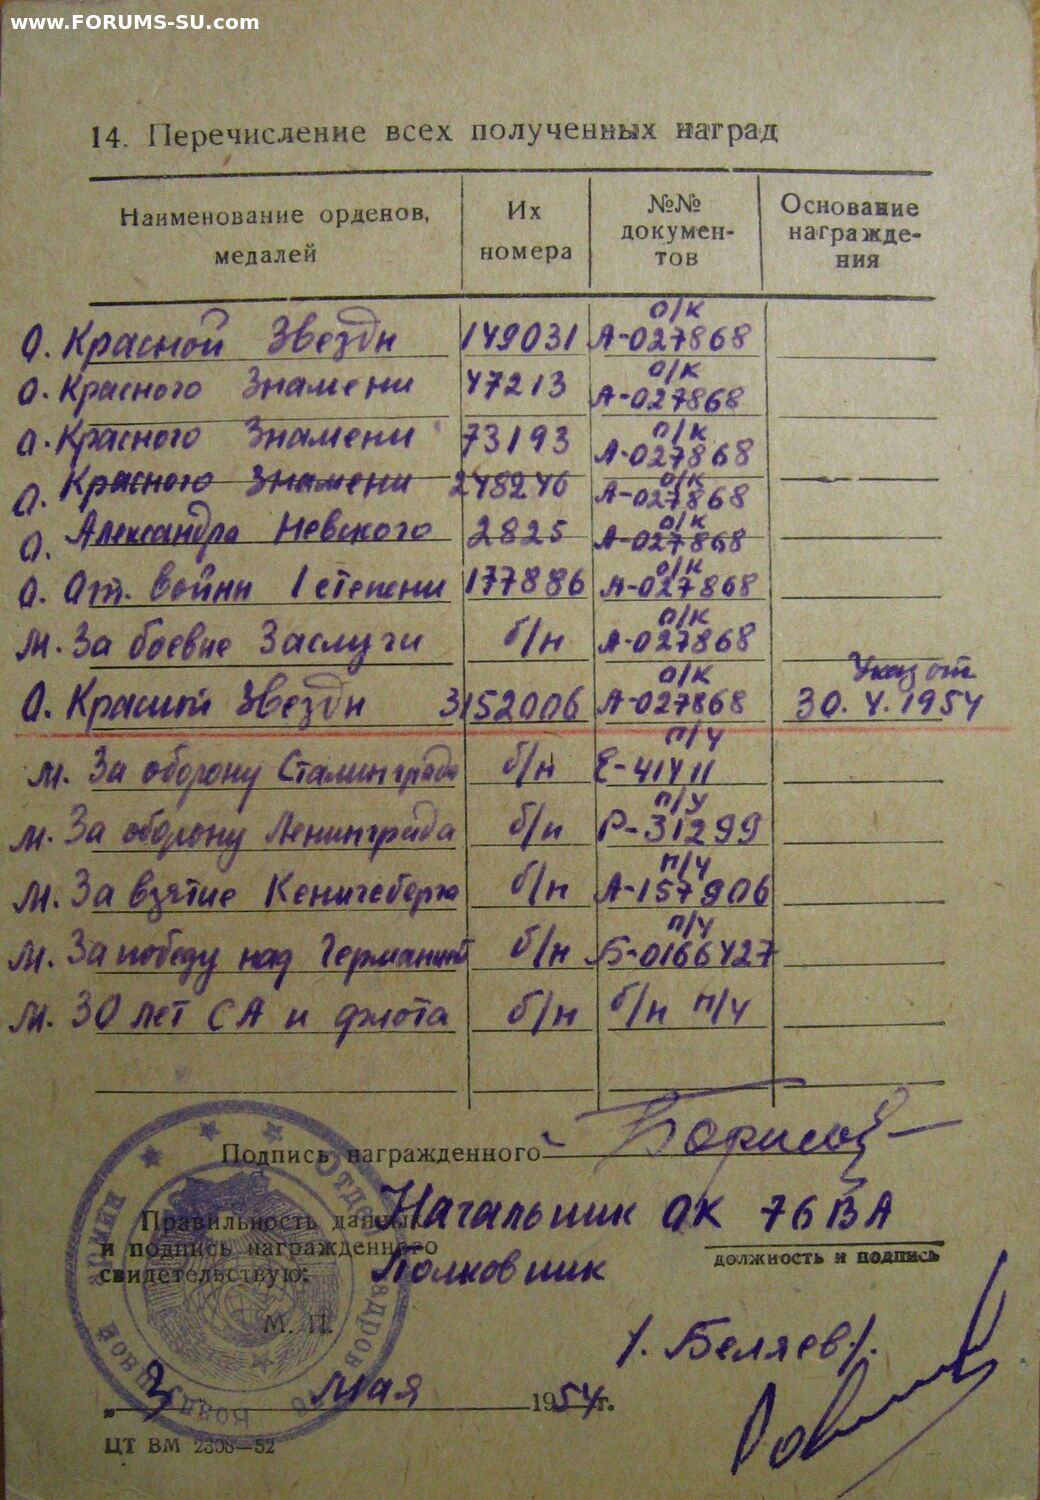 www.FORUMS-SU.com
14. Перечисление всех полученных наград
Наименование орденов, медалей | Их номера | №№ докумен-тов | Основание награжде-ния
О. Красной Звезды 149031 о/к А-027868
О. Красного Знамени 47213 о/к А-027868
О. Красного Знамени 73193 о/к А-027868
О. Красного Знамени 248246 о/к А-027868
О. Александра Невского 2825 о/к А-027868
О. От. войны I степени 177886 о/к А-027868
М. За боевые Заслуги б/н о/к А-027868
О. Красной Звезды 3152006 о/к А-027868 Указ от 30.4.1954
М. За оборону Сталинграда б/н п/у Е-41411
М. За оборону Ленинграда б/н п/у Р-31299
М. За взятие Кенигсберга б/н п/у А-157906
М. За победу над Германией б/н п/у Б-0166427
М. 30 лет СА и флота б/н б/н п/у
Подпись награжденного
Правильность данных Начальник ОК 76 ВА
и подпись награжденного
должность и подпись
свидетельствую: Полковник
М. П.
/. Беляев/.
„3 мая 1954г.
ЦТ ВМ 2308—52